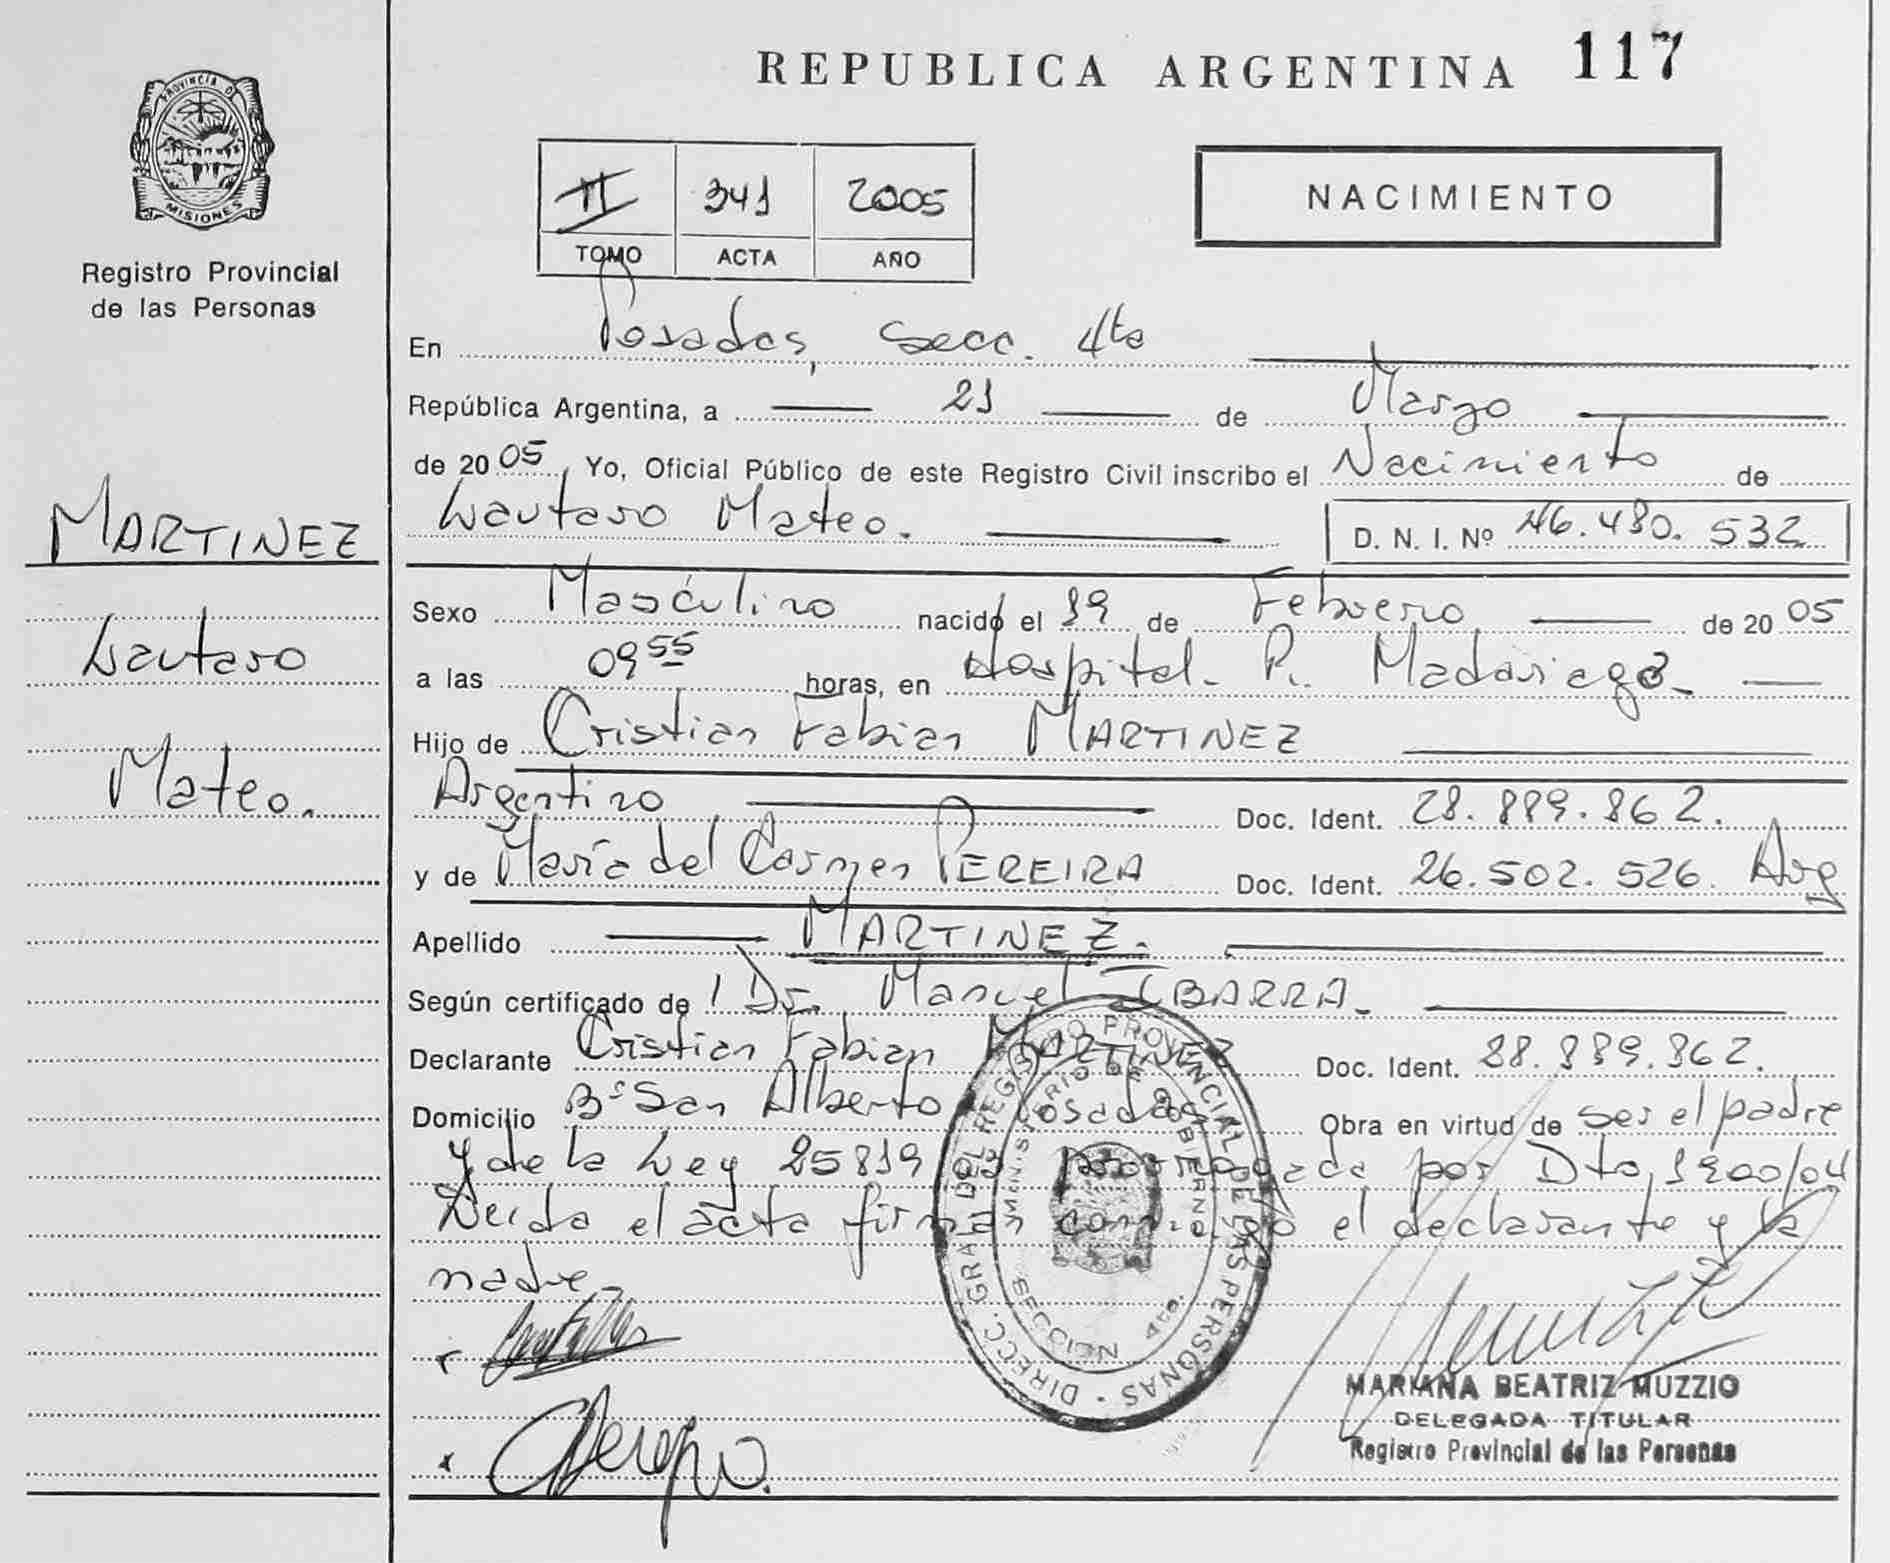 REPUBLICA ARGENTINA 117
PROVINCIA DE
MISIONES
Registro Provincial
de las Personas
II 341 2005
TOMO ACTA AÑO
NACIMIENTO
MARTINEZ
Lautaro
Mateo.
En Posadas, Secc. 4ta
República Argentina, a 21 de Marzo
de 2005, Yo, Oficial Público de este Registro Civil inscribo el Nacimiento de
Lautaro Mateo. D. N. I. Nº 46.480.532
Sexo Masculino nacido el 19 de Febrero de 2005
a las 09 55 horas, en Hospital R. Madariaga
Hijo de Cristian Fabian MARTINEZ
Argentino Doc. Ident. 28.889.862.
y de María del Carmen PEREIRA Doc. Ident. 26.502.526. Arg
Apellido MARTINEZ.
Según certificado de l Dr. Manuel IBARRA
Declarante Cristian Fabian MARTINEZ Doc. Ident. 28.889.862.
Domicilio Bº San Alberto Posadas Obra en virtud de ser el padre
y de la Ley 25819 prorrogada por Dto, 1900/04
Leida el acta firman conmigo el declarante y la
madre
DIRECC. GRAL. DEL REGISTRO PROVINCIAL DE LAS PERSONAS
MINISTERIO DE GOBIERNO
SECCION 4ta.
MARIANA BEATRIZ MUZZIO
DELEGADA TITULAR
Registro Provincial de las Personas